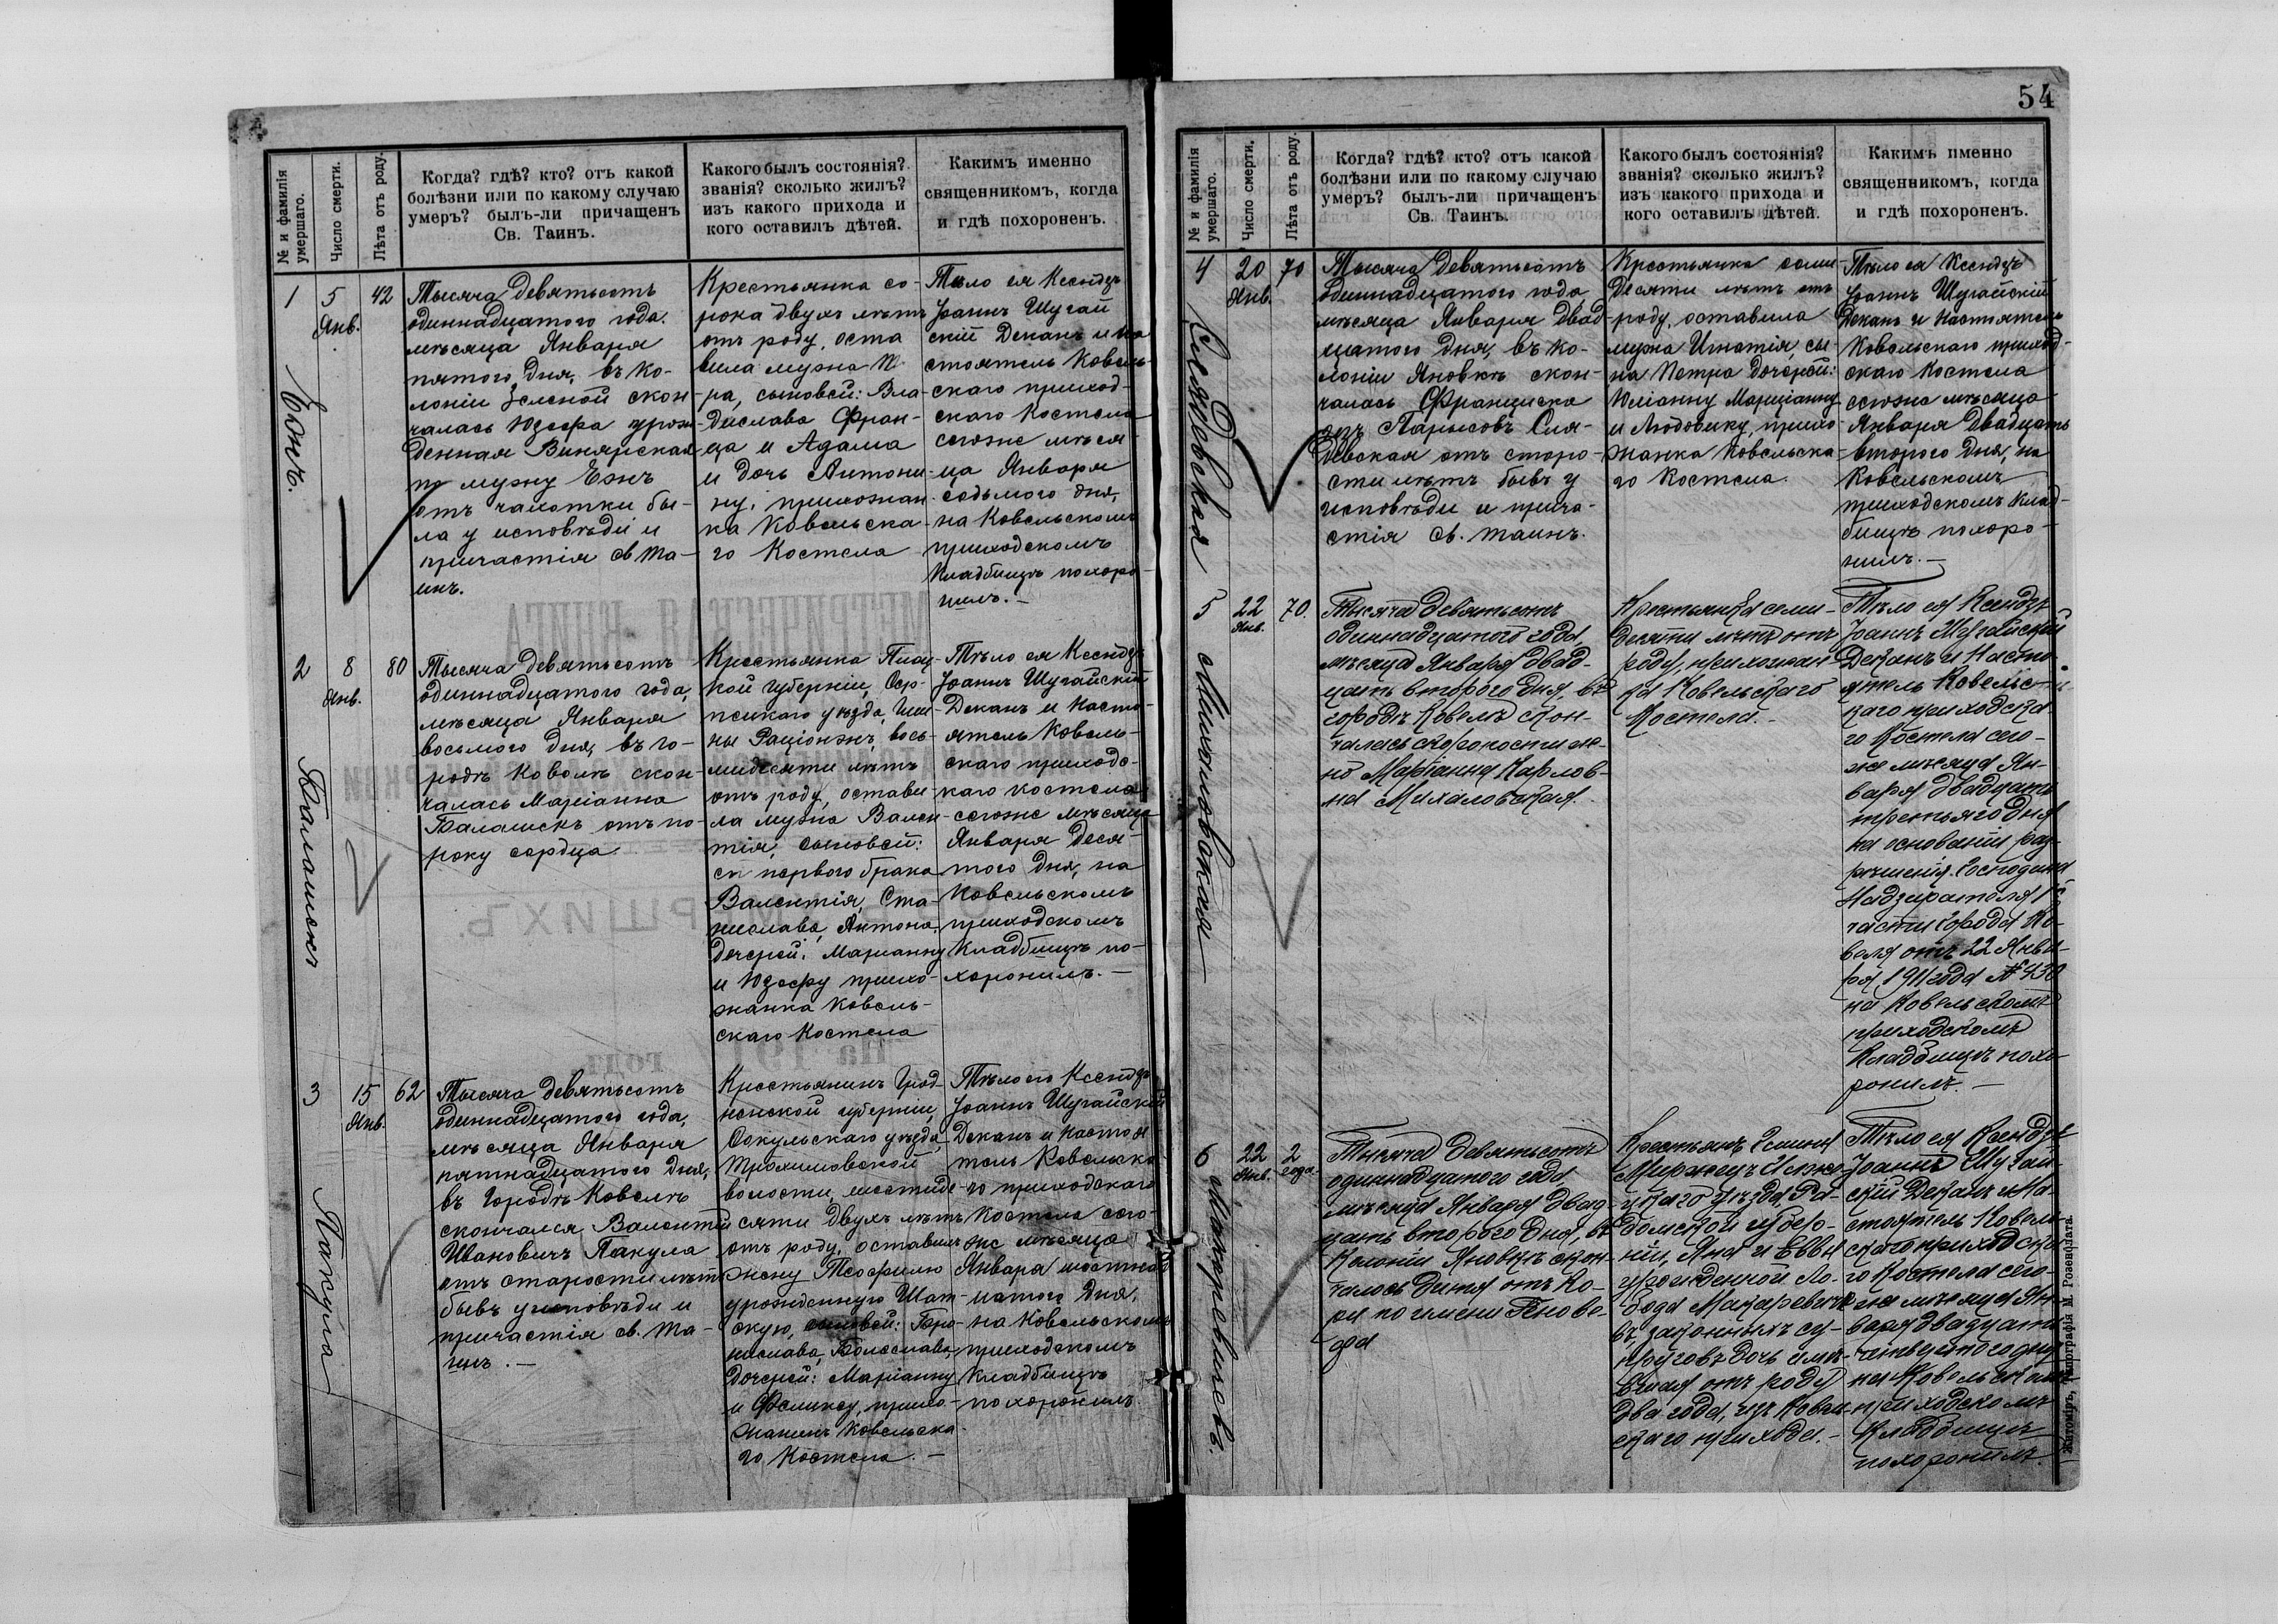 № и фамилія умершаго.
Число смерти.
Лѣта отъ роду.
Когда? гдѣ? кто? отъ какой
болѣзни или по какому случаю
умеръ? былъ-ли причащенъ
Св. Таинъ.
Какого былъ состоянія?
званія? сколько жилъ?
изъ какого прихода и
кого оставилъ дѣтей.
Какимъ именно
священникомъ, когда
и гдѣ похороненъ.
1
Еонъ.
5
Янв.
42
Тысяча девятьсотъ
одиннадцатого года.
мѣсяца Января
пятого дня, въ ко-
лоніи Зеленой скон-
чалась Юзефа урож-
денная Винярская
по мужу Еонъ
отъ чахотки бы-
ла у исповѣди и
причастія св Та-
инъ.
Крестьянка со-
рока двухъ лѣтъ
отъ роду, оста
вила мужа
ра, сыновей: Вла-
дислава Фран-
ца и Адама
и дочь Антони-
ну, прихожан-
ка Ковельска-
го Костела
Тѣло ея Ксендзъ
Іоаннъ Шугай
скій Деканъ и на
стоятель Ковель-
скаго приход-
скаго Костела
сегоже мѣся-
ца Января
седьмого дня,
на Ковельскомъ
приходскомъ
Кладбищѣ похоро-
нилъ.—
2
Балашекъ
8
Янв.
80
Тысяча девятьсотъ
одиннадцатого года,
мѣсяца Января
восьмого дня, въ го-
родѣ Ковелѣ скон-
чалась Маріанна
Балашекъ отъ по-
року сердца.
Крестьянка
кой губерніи,
уѣзда, Гми-
ны вось-
мидесяти лѣтъ
отъ роду, остави-
ла мужа Вален-
тія, сыновей:
съ первого брака
Валентія, Ста-
нислава, Антона,
дочерей: Марианну
и Юзефу прихо-
жанка Ковель-
скаго Костела
Тѣло ея Ксендзъ
Іоаннъ Шугайскій
Деканъ и Насто-
ятель Ковель-
скаго приходс-
каго костела
сегоже мѣсяца
Января деся-
того дня, на
Ковельскомъ
приходскомъ
Кладбищѣ по-
хоронилъ.—
3
Пакула
15
Янв.
62
Тысяча девятьсотъ
одиннадцатого года,
мѣсяца Января
пятнадцатого дня,
въ городѣ Ковелѣ
скончался Валентій
Ивановичъ Пакула
отъ старости лѣтъ
бывъ у исповѣди и
причастія св. Та-
инъ.—
Крестьянинъ Грод-
ненской губерніи,
Сокульскаго уѣзда,
волости, шестиде-
сяти двухъ лѣтъ
отъ роду, оставилъ
жену Теофилю
урожденную Шат-
скую, сыновей: Бро-
нислава, Болеслава,
дочерей: Маріанну
и Феликсу, прихо-
жанинъ Ковельска-
го Костела.—
Тѣло его Ксендзъ
Іоаннъ Шугайскій
Деканъ и Настоя
тель Ковельска-
го приходскаго
Костела сего-
же мѣсяца
Января шестнад
цатого дня,
на Ковельскомъ
приходскомъ
Кладбищѣ
похоронилъ
54
№ и фамилія умершаго.
Число смерти.
Лѣта отъ роду.
Когда? гдѣ? кто? отъ какой
болѣзни или по какому случаю
умеръ? былъ-ли причащенъ
Св. Таинъ.
Какого былъ состоянія?
званія? сколько жилъ?
изъ какого прихода и
кого оставилъ дѣтей.
Какимъ именно
священникомъ, когда
и гдѣ похороненъ.
4
Слядевская
20
Янв.
70
Тысяча девятьсотъ
одиннадцатого года,
мѣсяца Января двад
цатого дня, въ ко-
лоніи Яновкѣ скон-
чалась Франциска
изъ Парысовъ Сля-
девская отъ старо-
сти лѣтъ бывъ у
исповѣди и прича-
стія св. таинъ.
Крестьянка семи
десяти лѣтъ отъ
роду, оставила
мужа Игнатія, сы-
на Петра дочерей:
Юліанну Марціанну
и Людовику, прихо
жанка Ковельска-
го Костела.
Тѣло ея Ксендзъ
Іоаннъ Шугайскій
Деканъ и Настоятель
Ковельскаго приход-
скаго Костела
сегоже мѣсяца
Января двадцать
второго дня, на
Ковельскомъ
приходскомъ Клад-
бищѣ похоро-
нилъ.—
5
Михаловская
22
Янв.
70.
Тысяча девятьсотъ
одиннадцатого года,
мѣсяца Января двад-
цать второго дня, въ
городѣ Ковелѣ скон-
чалась скоропостиж-
но Маріанна Карлов-
на Михаловская.
Крестьянка семи-
десяти лѣтъ отъ
роду, прихожан-
ка Ковельскаго
Костела.-
Тѣло ея Ксендзъ
Іоаннъ Шугайскій
Деканъ и Насто-
ятель Ковельс-
каго приходска-
го Костела сего-
же мѣсяца Ян-
варя двадцать
третьяго дня
на основаніи раз-
рѣшенія Господина
Надзирателя 1
части города Ко-
веля отъ 22 Янва-
ря 1911 года № 430
на Ковельскомъ
приходскомъ
Кладбищѣ похо-
ронилъ.—
6
Макаревичъ.
22
Янв.
2
года.
Тысяча девятьсотъ
одиннадцатого года
мѣсяца Января двад
цать второго дня, въ
Колоніи Яновкѣ скон-
чалось дитя отъ Ко-
ри по имени Генове-
фа
Крестьянъ Гмины
уѣзда, Ра-
домской губер-
ніи, Яна и Еввы
урожденной Ло-
бода Макаревичъ
въ законныхъ су-
пруговъ дочь имѣ-
вшая отъ роду
два года, изъ Ковель
скаго прихода.-
Тѣло ея Ксендзъ
Іоаннъ Шугай-
скій Деканъ и На-
стоятель Ковель
скаго приходска-
го Костела сего-
же мѣсяца Ян-
варя двадцать
четвертого дня
на Ковельскомъ
приходскомъ
Кладбищѣ
похоронилъ.
Житоміръ, Типографія М. Розенблата.